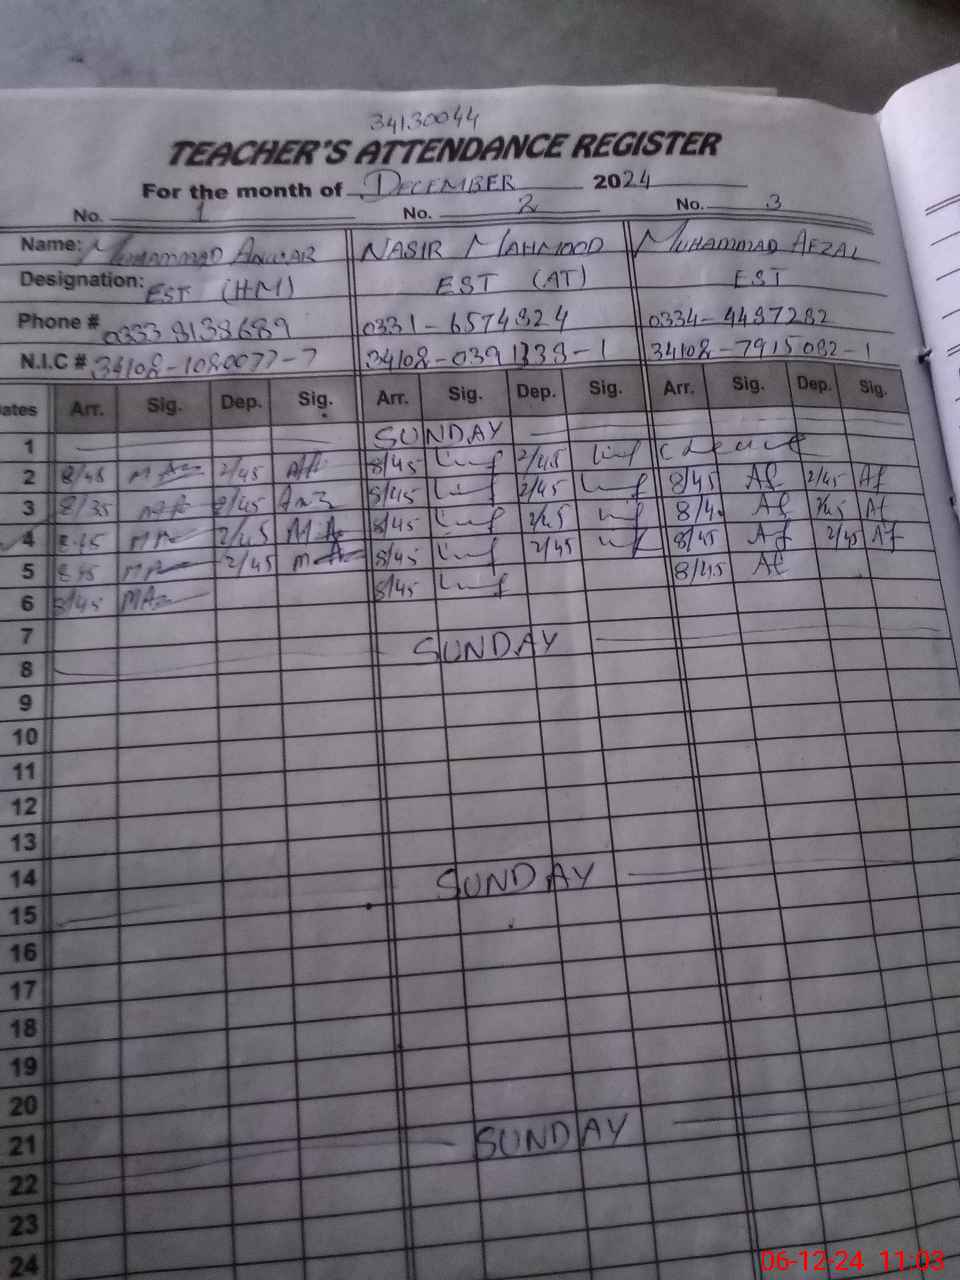 34130044
TEACHER'S ATTENDANCE REGISTER
For the month of DECEMBER 2024
No. 1 No. 2 No. 3
Name: MUHAMMAD ANWAR NASIR MAHMOOD MUHAMMAD AFZAL
Designation: EST (HM) EST (AT) EST
Phone # 0333 8138689 0331-6574824 0334-4487282
N.I.C # 34102-1080077-7 34102-0391338-1 34102-7915082-1
ates Arr. Sig. Dep. Sig. Arr. Sig. Dep. Sig. Arr. Sig. Dep. Sig.
1 SUNDAY
2 8/45 2/45 8/45 2/45
3 8/35 2/45 8/45 2/45 8/45 Af 2/45 Af
4 8/45 2/45 8/45 2/45 8/45 Af 2/45 Af
5 8/45 2/45 8/45 2/45 8/45 Af 2/45 Af
6 8/45 8/45 8/45 Af
7
8 SUNDAY
9
10
11
12
13
14
15 SUNDAY
16
17
18
19
20
21
22 SUNDAY
23
24
06-12-24 11:03